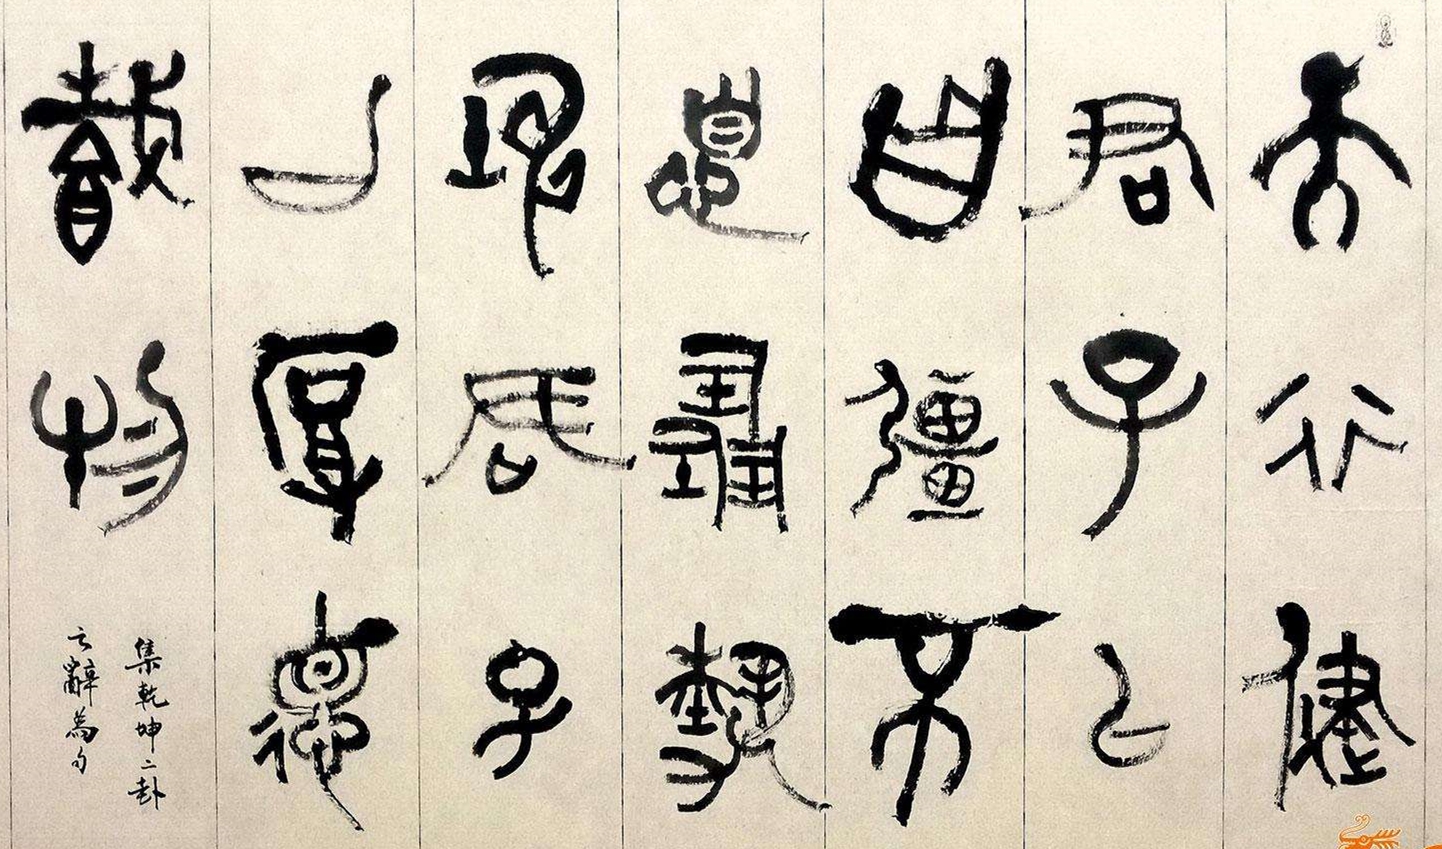 天行健
君子以
自彊不
息地勢
坤君子
以厚德
載物
集乾坤二卦
之辭為句